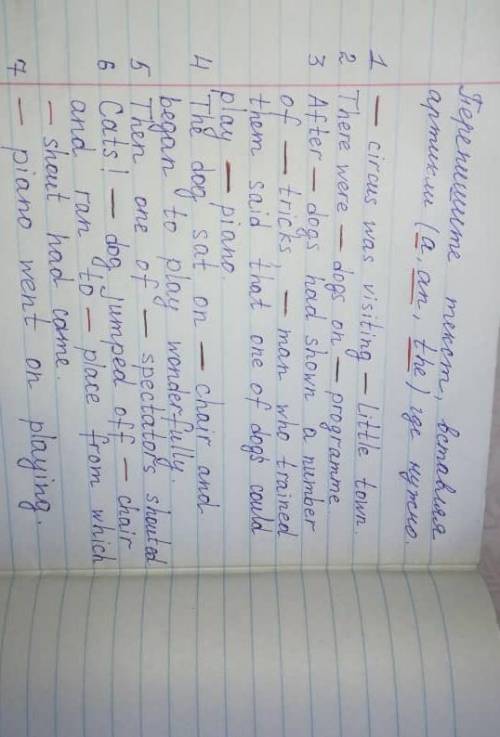 Перепишите текст, вставляя
артикли (a, an, the) где нужно.
1 — circus was visiting — little town.
2 There were — dogs on — programme
3 After — dogs had shown a number
of — tricks — man who trained
them said that one of dogs could
play — piano.
4 The dog sat on — chair and
began to play wonderfully.
5 Then one of — spectators shouted
6 Cats! — dog jumped off — chair
and ran to — place from which
— shout had come.
7 — piano went on playing.